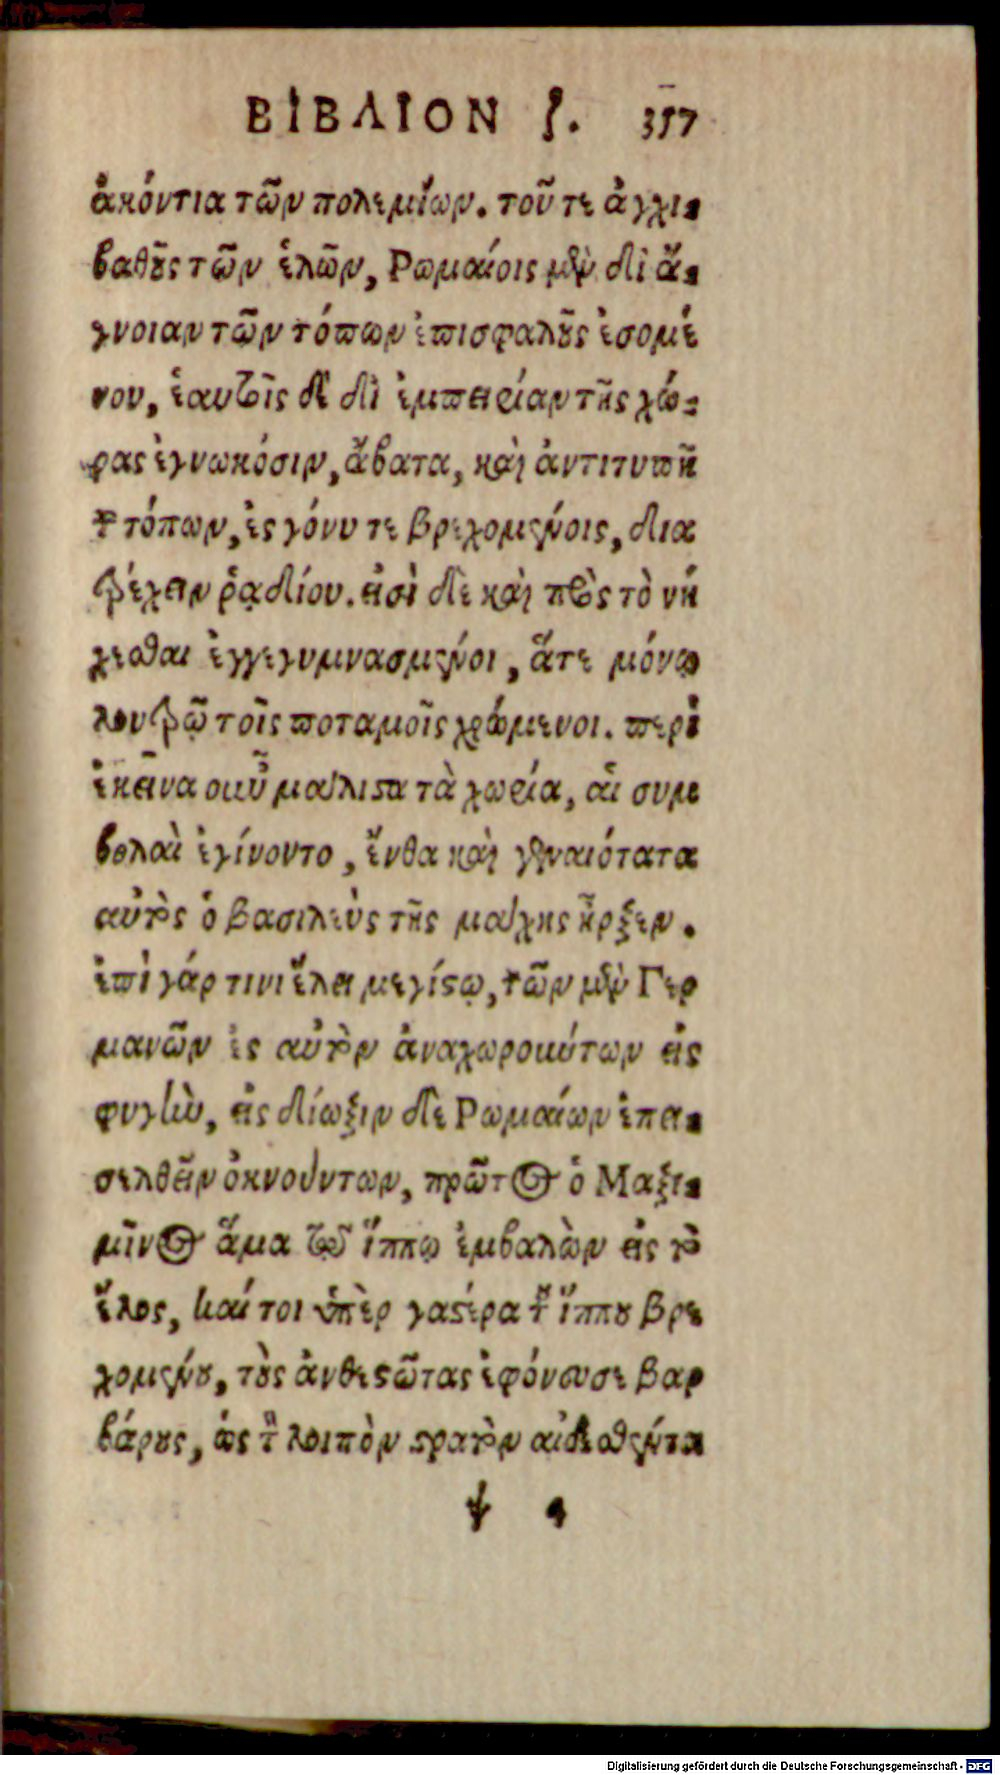 ΒΙΒΛΙΟΝ ζ. 357
ἀκόντια τῶν πολεμίων. τοῦ τε ἀγχι-
βαθοῦς τῶν ἑλῶν, Ρωμαίοις μὲν δι ἄ-
γνοιαν τῶν τόπων ἐπισφαλοῦς ἐσομέ
νου, ἑαυτοῖς δὲ δι ἐμπειρίαν τῆς χώ-
ρας ἐγνωκόσιν, ἄβατα, καὶ ἀντιτυπῆ
τῶν τόπων, ἐς γόνυ τε βρεχομένοις, δια
τρέχειν ῥᾳδίου. εἰσὶ δὲ καὶ πρὸς τὸ νή
χεσθαι ἐγγεγυμνασμένοι, ἅτε μόνῳ
λουτρῷ τοῖς ποταμοῖς χρώμενοι. περὶ
ἐκεῖνα οὖν μάλιστα τὰ χωρία, αἱ συμ
βολαὶ ἐγίνοντο, ἔνθα καὶ γενναιότατα
αὐτὸς ὁ βασιλεὺς τῆς μάχης ἦρξεν.
ἐπὶ γάρ τινι ἕλει μεγίστῳ, τῶν μὲν Γερ
μανῶν ἐς αὐτὸν ἀναχωρούντων εἰς
φυγὴν, εἰς δίωξιν δὲ Ρωμαίων ἐπει-
σελθεῖν ὀκνούντων, πρῶτος ὁ Μαξι-
μῖνος ἅμα τῷ ἵππῳ ἐμβαλὼν εἰς τὸ
ἕλος, καί τοι ὑπὲρ γαστέρα τοῦ ἵππου βρε
χομένου, τοὺς ἀνθεστῶτας ἐφόνευσε βαρ
βάρους, ὡς τὸν λοιπὸν στρατὸν αἰδεσθέντα
ψ 4
Digitalisierung gefördert durch die Deutsche Forschungsgemeinschaft - DFG